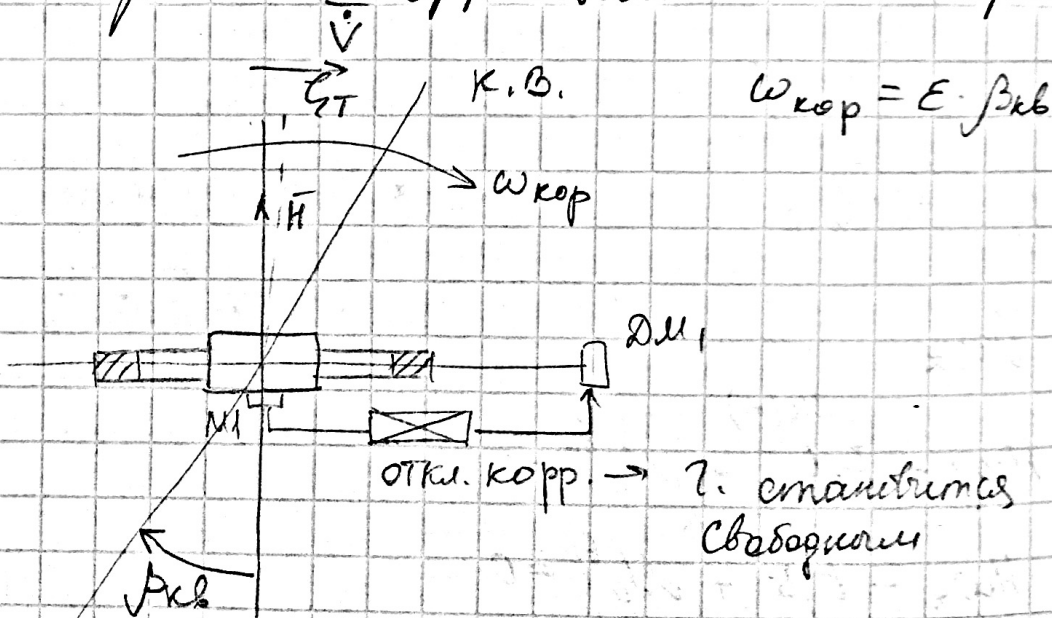 V̇
ζ_T
К.В.
ω_кор = ε · β_кв
ω_кор
H̄
ДМ₁
М1
откл. корр. → г. становится
Свабадным
β_кв